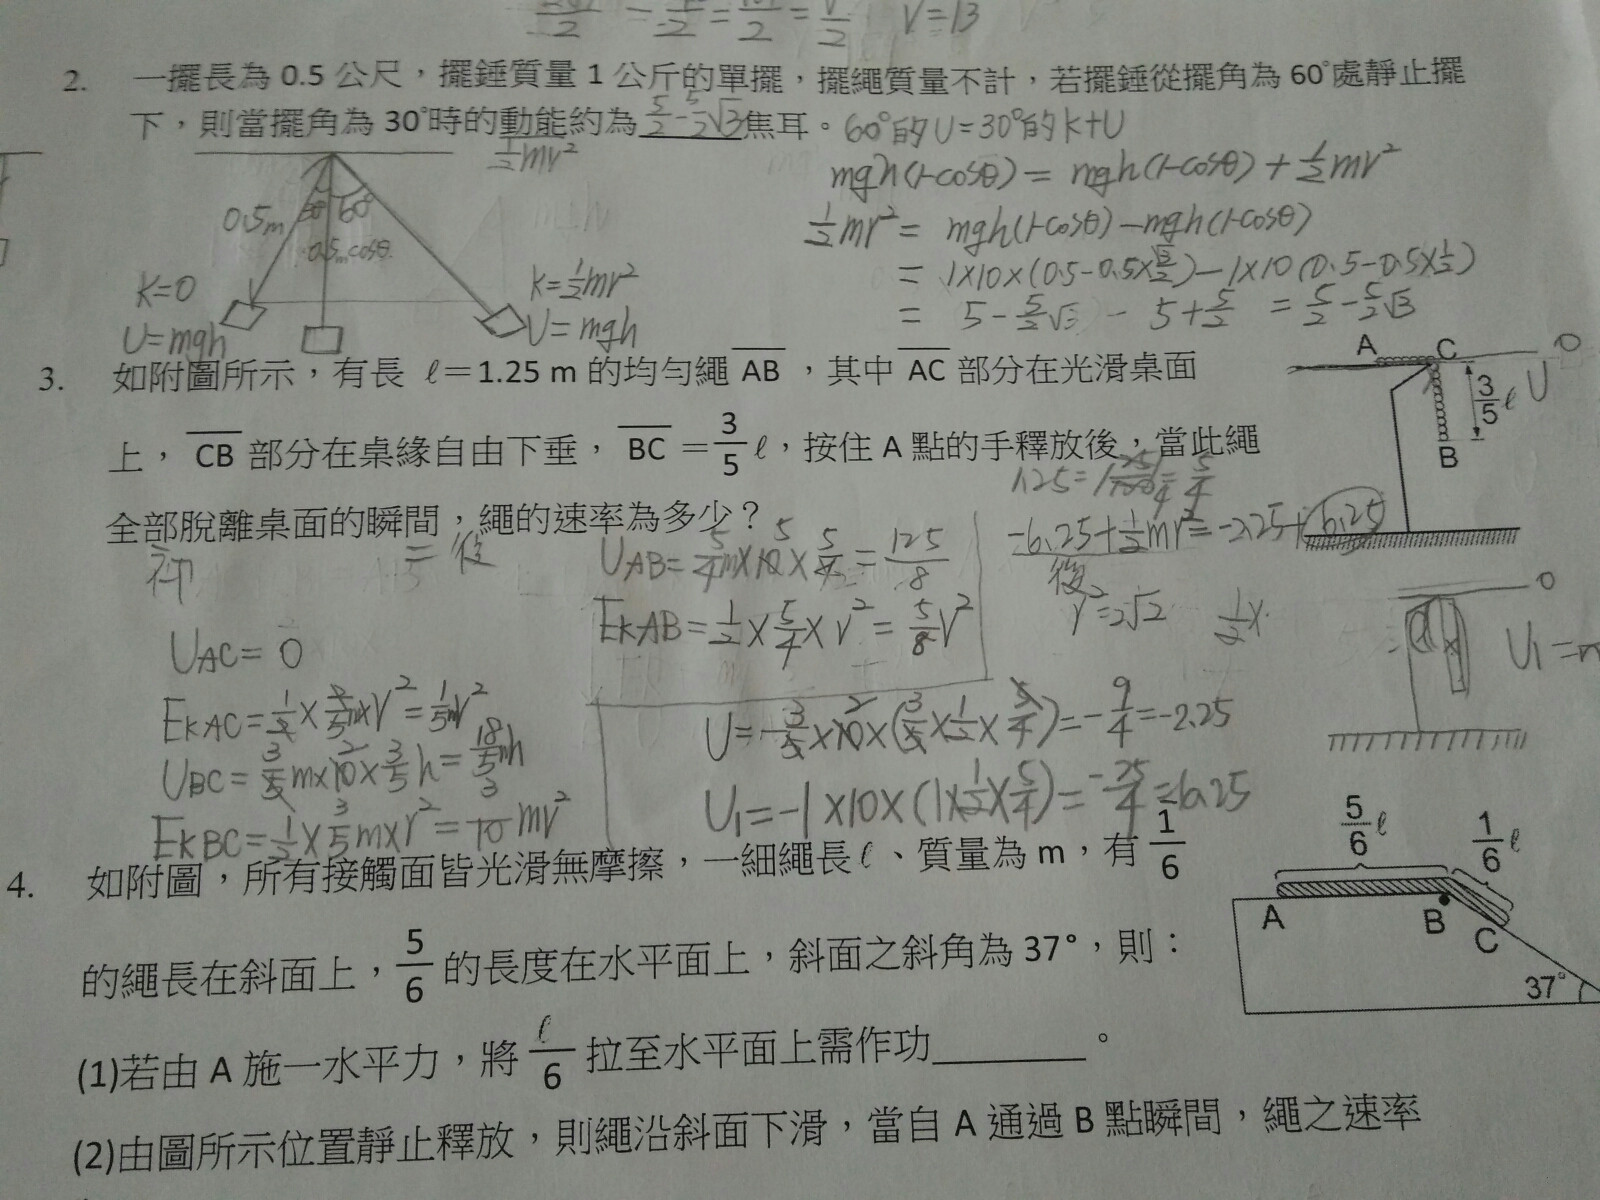 V=13
2. 一擺長為 0.5 公尺，擺錘質量 1 公斤的單擺，擺繩質量不計，若擺錘從擺角為 60°處靜止擺
下，則當擺角為 30°時的動能約為 5/2-5/2√3 焦耳。 60°的U=30°的K+U
1/2mv²
mgh(1-cosθ) = mgh(1-cosθ) + 1/2mv²
0.5m 30° 60°
0.5m cosθ
1/2mv² = mgh(1-cosθ) - mgh(1-cosθ)
= 1×10×(0.5-0.5×√3/2) - 1×10(0.5-0.5×1/2)
= 5 - 5/2√3 - 5 + 5/2 = 5/2 - 5/2√3
K=0
U=mgh
K=1/2mv²
U=mgh
3. 如附圖所示，有長 ℓ＝1.25 m 的均勻繩 AB ，其中 AC 部分在光滑桌面
上， CB 部分在桌緣自由下垂， BC ＝ 3/5 ℓ，按住 A 點的手釋放後，當此繩
全部脫離桌面的瞬間，繩的速率為多少？
A C 0
3/5 ℓ U
B
= 後
UAB = 5/4m×10×5/4 = 125/8
EKAB = 1/2×5/4×V² = 5/8V²
-6.25+1/2mv² = -2.25+6.25
後
V²=2√2
0
UAC = 0
EKAC = 1/2×2/5m×V² = 1/5mV²
UBC = 3/5m×10×3/5h = 18/5mh
EKBC = 1/2×3/5m×V² = 3/10mV²
U = -3/5×10×(3/5×1/2×5/4) = -9/4 = -2.25
U₁ = -1×10×(1×1/2×5/4) = -25/4 = 6.25
4. 如附圖，所有接觸面皆光滑無摩擦，一細繩長 ℓ、質量為 m，有 1/6
的繩長在斜面上，5/6 的長度在水平面上，斜面之斜角為 37°，則：
5/6 ℓ 1/6 ℓ
A B C
37°
(1)若由 A 施一水平力，將 ℓ/6 拉至水平面上需作功________。
(2)由圖所示位置靜止釋放，則繩沿斜面下滑，當自 A 通過 B 點瞬間，繩之速率